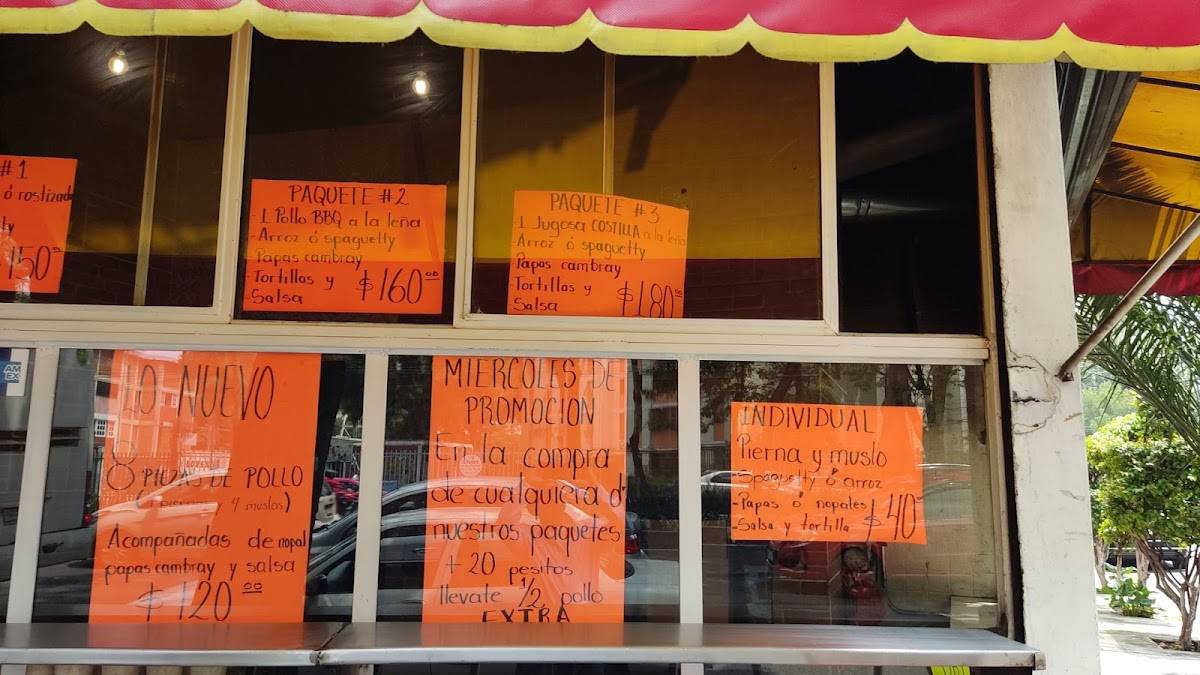 #1
ó rostizado
150
PAQUETE #2
- 1 Pollo BBQ a la leña
- Arroz ó spaguetty
Papas cambray
- Tortillas y
- Salsa
$160.00
PAQUETE #3
1 Jugosa COSTILLA a la leña
- Arroz ó spaguetty
Papas cambray
Tortillas y
Salsa
$180.00
AM
EX
LO NUEVO
8 PIEZAS DE POLLO
y 4 muslos)
Acompañadas de nopal
papas cambray y salsa
$120.00
MIERCOLES DE
PROMOCION
En la compra
de cualquiera d'
nuestros paquetes
+ 20 pesitos
llevate 1/2 pollo
EXTRA
INDIVIDUAL
Pierna y muslo
- Spaguetty ó arroz
- Papas ó nopales
- Salsa y tortilla
$40